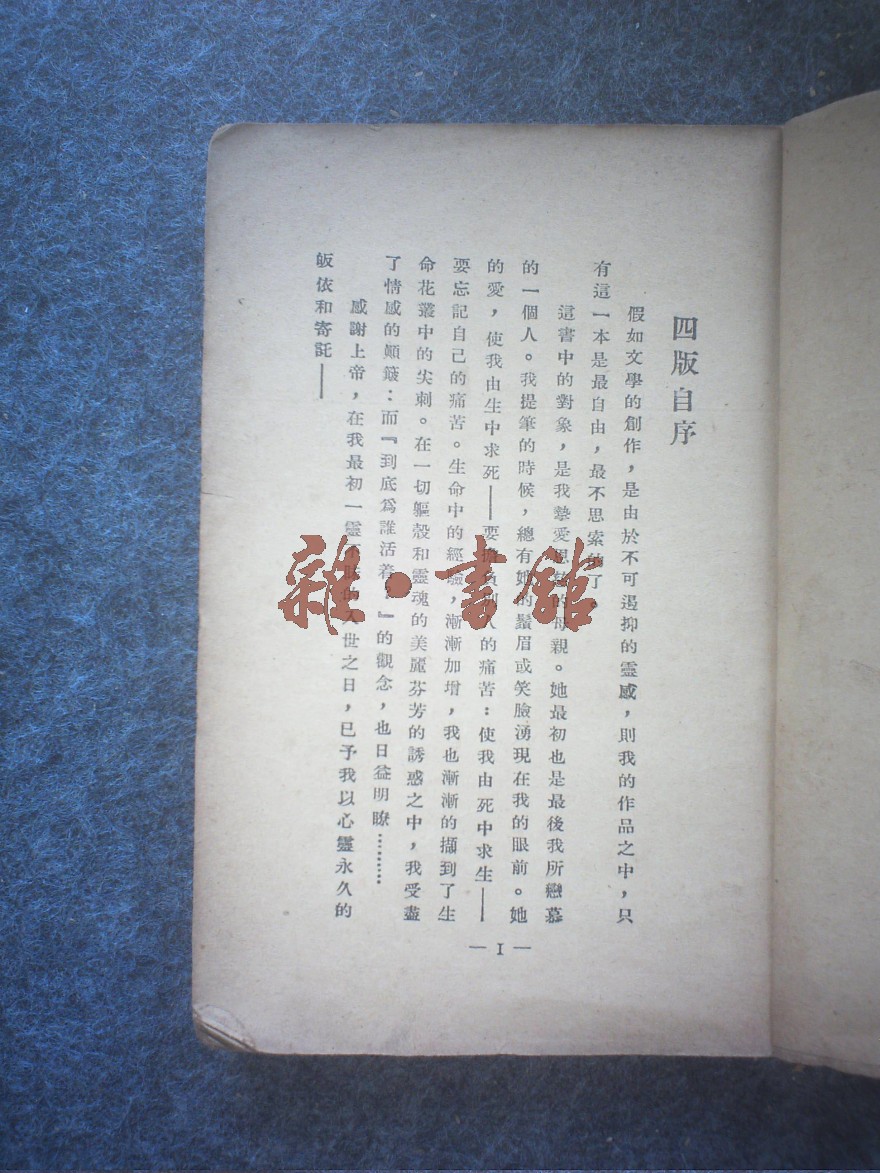 四版自序
假如文學的創作，是由於不可遏抑的靈感，則我的作品之中，只
有這一本是最自由，最不思索的了。
這書中的對象，是我摯愛思的母親。她最初也是最後我所戀慕
的一個人。我提筆的時候，總有她的顰眉或笑臉湧現在我的眼前。她
的愛，使我由生中求死——要擔負別人的痛苦：使我由死中求生——
要忘記自己的痛苦。生命中的經驗，漸漸加增，我也漸漸的擷到了生
命花叢中的尖刺。在一切軀殼和靈魂的美麗芬芳的誘惑之中，我受盡
了情感的顛簸：而『到底爲誰活着』的觀念，也日益明瞭…………
感謝上帝，在我最初一靈不入世之日，已予我以心靈永久的
皈依和寄託——
— I —
雜·書館